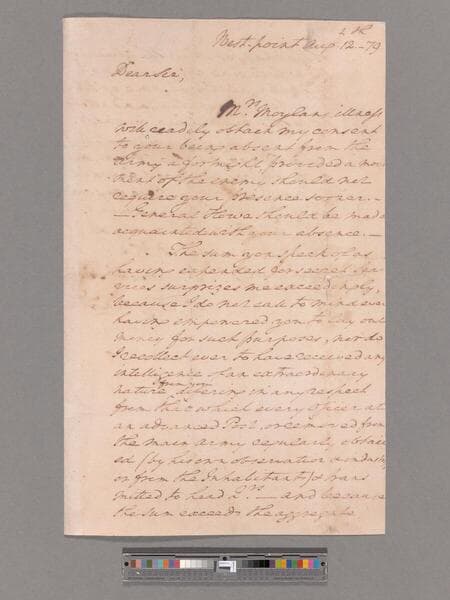 West-point Aug 12th - 79
Dear Sir,
Mrs Moylans illness
will readily obtain my consent
to your being absent from the
Army a fortnight, provided a move
ment of the enemy should not
require your presence sooner. -
- General Howe should be made
acquainted with your absence. -
The sum you speak of as
having expended for secret Ser
vices surprizes me exceedingly,
because I do not call to mind ever
having empowered you to lay out
money for such purposes, nor do
I recollect ever to have received any
intelligence of an extraordinary
nature from you, differing in any respect
from that which every Officer at
an advanced Post, or removed from
the main Army regularly obtain
ed (by his own observation & industry
or from the Inhabitants) & trans
mitted to head Qrs. - and because
the sum exceeds the aggregate